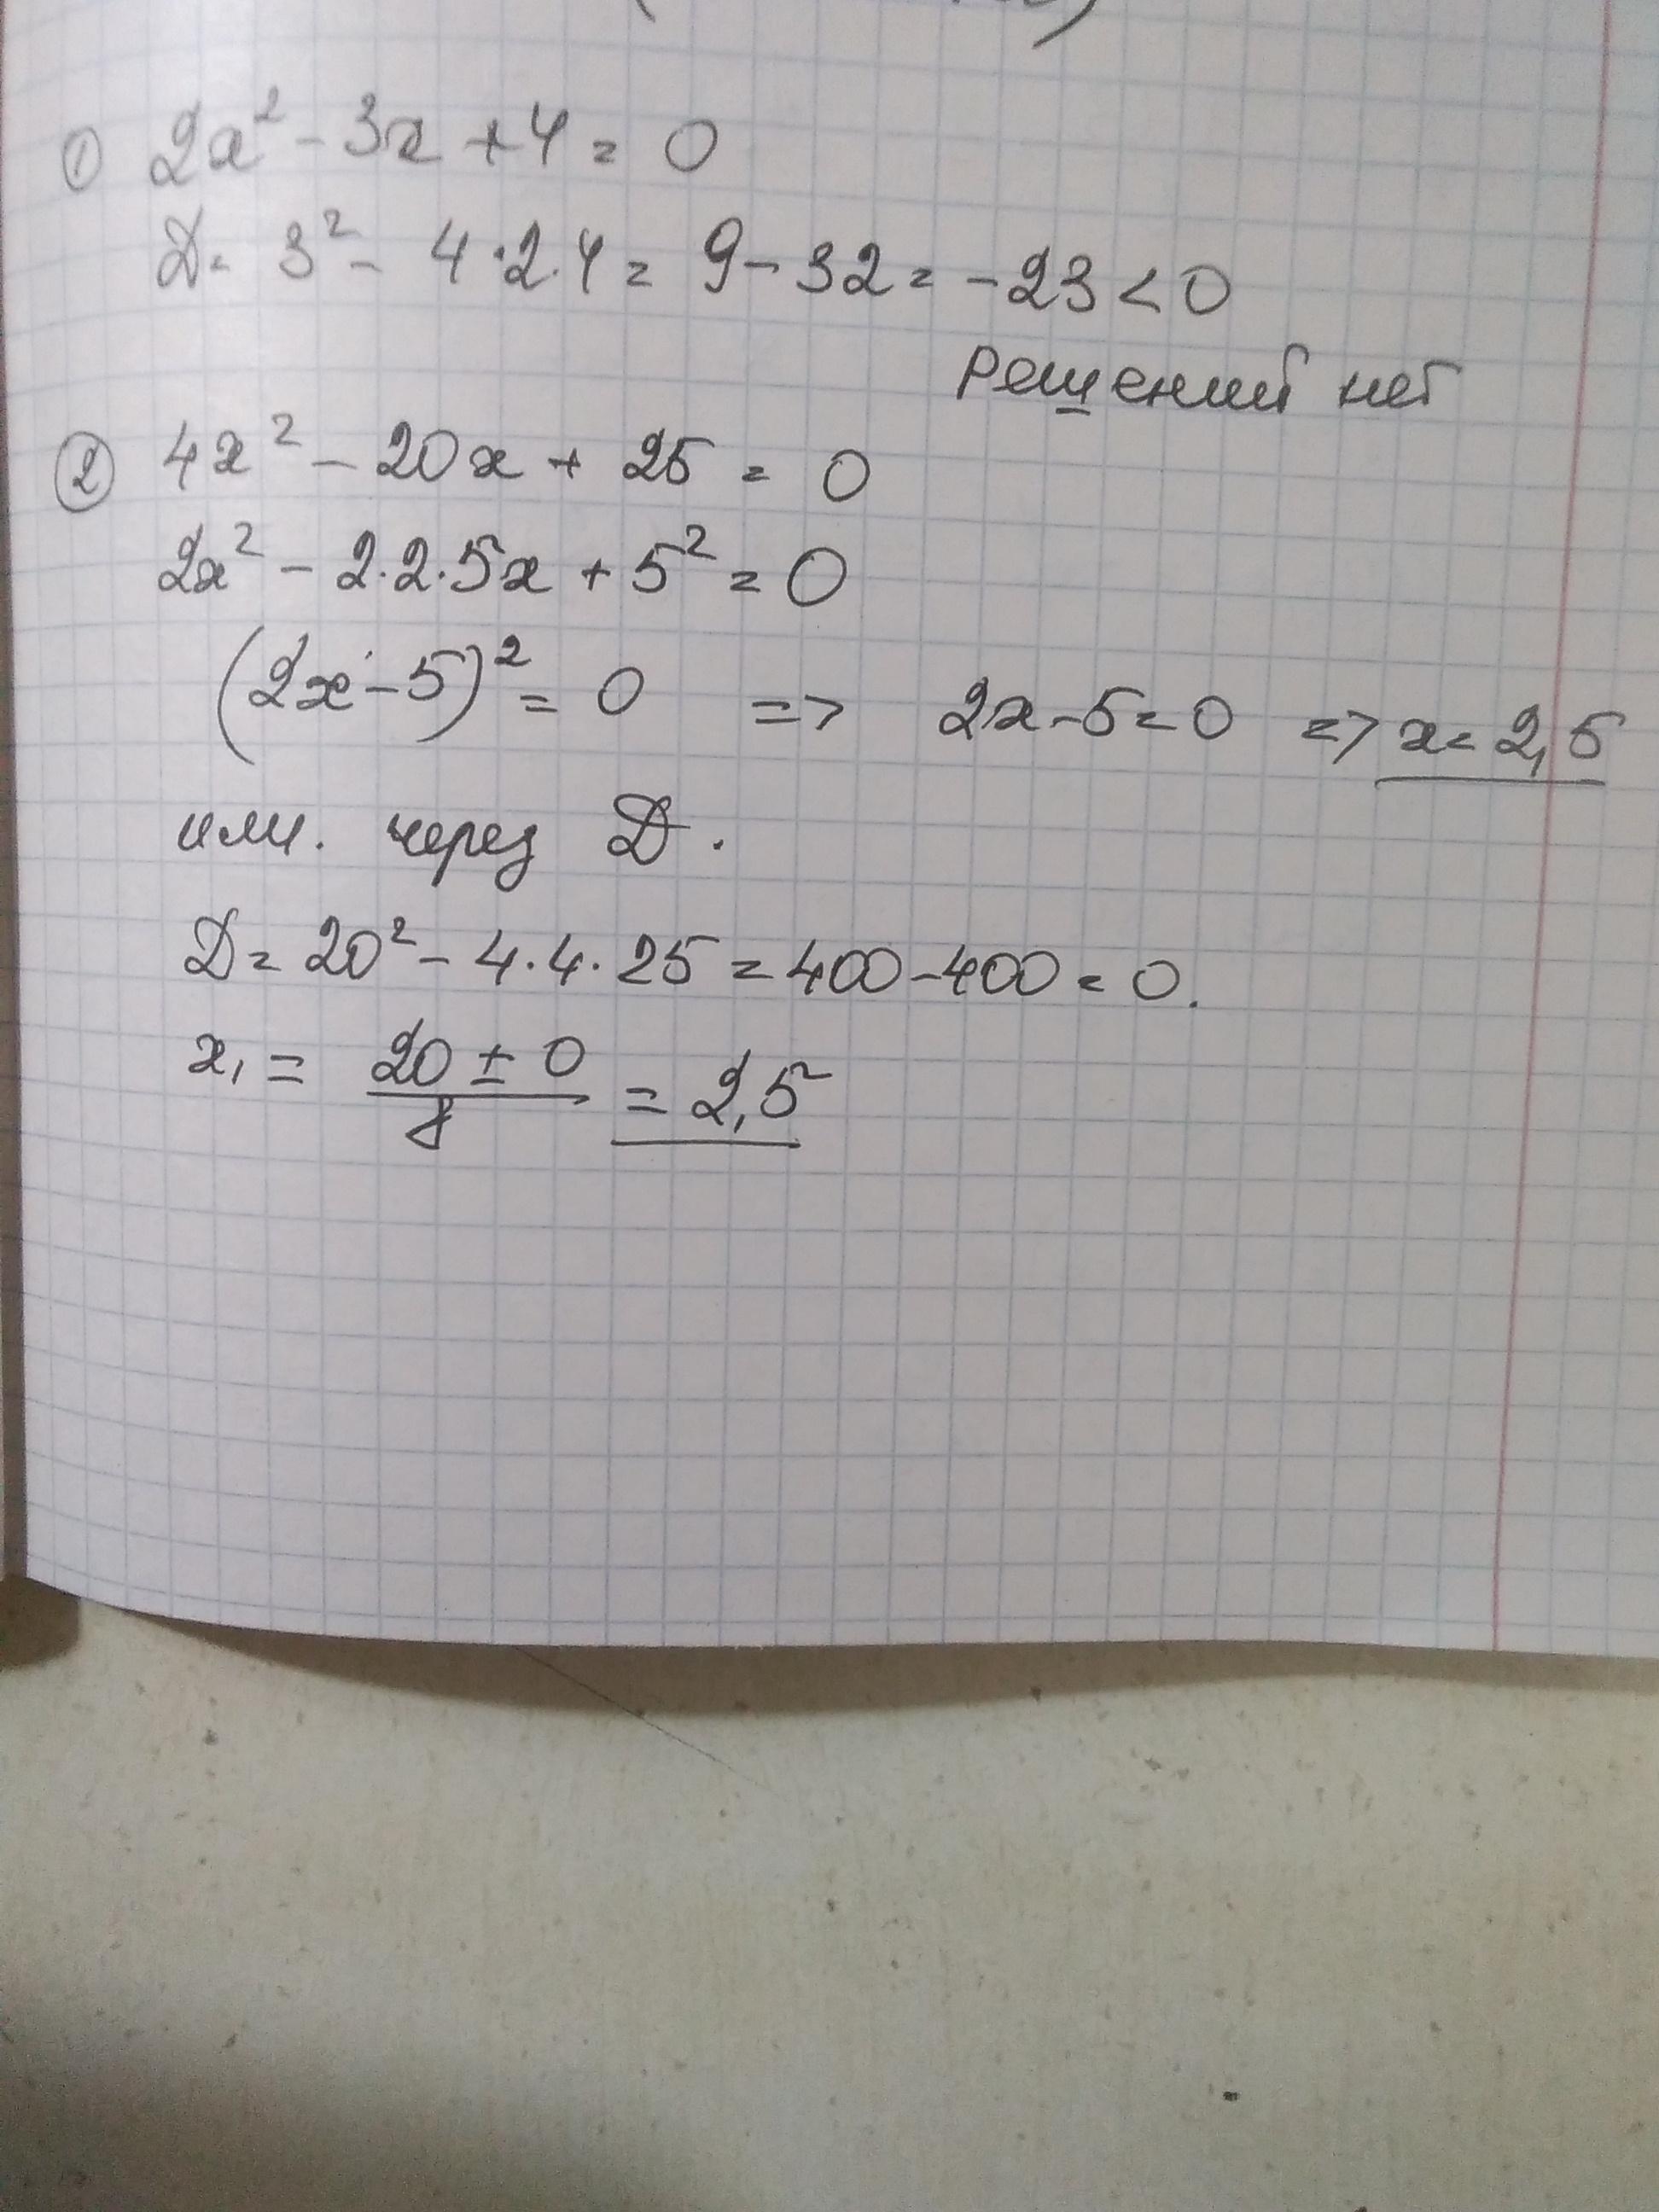 ① 2x² - 3x + 4 = 0
D = 3² - 4·2·4 = 9 - 32 = -23 < 0
Решений нет
② 4x² - 20x + 25 = 0
2x² - 2·2·5x + 5² = 0
(2x - 5)² = 0 => 2x - 5 = 0 => x = 2,5
или. через D.
D = 20² - 4·4·25 = 400 - 400 = 0.
x₁ = (20 ± 0)/8 = 2,5